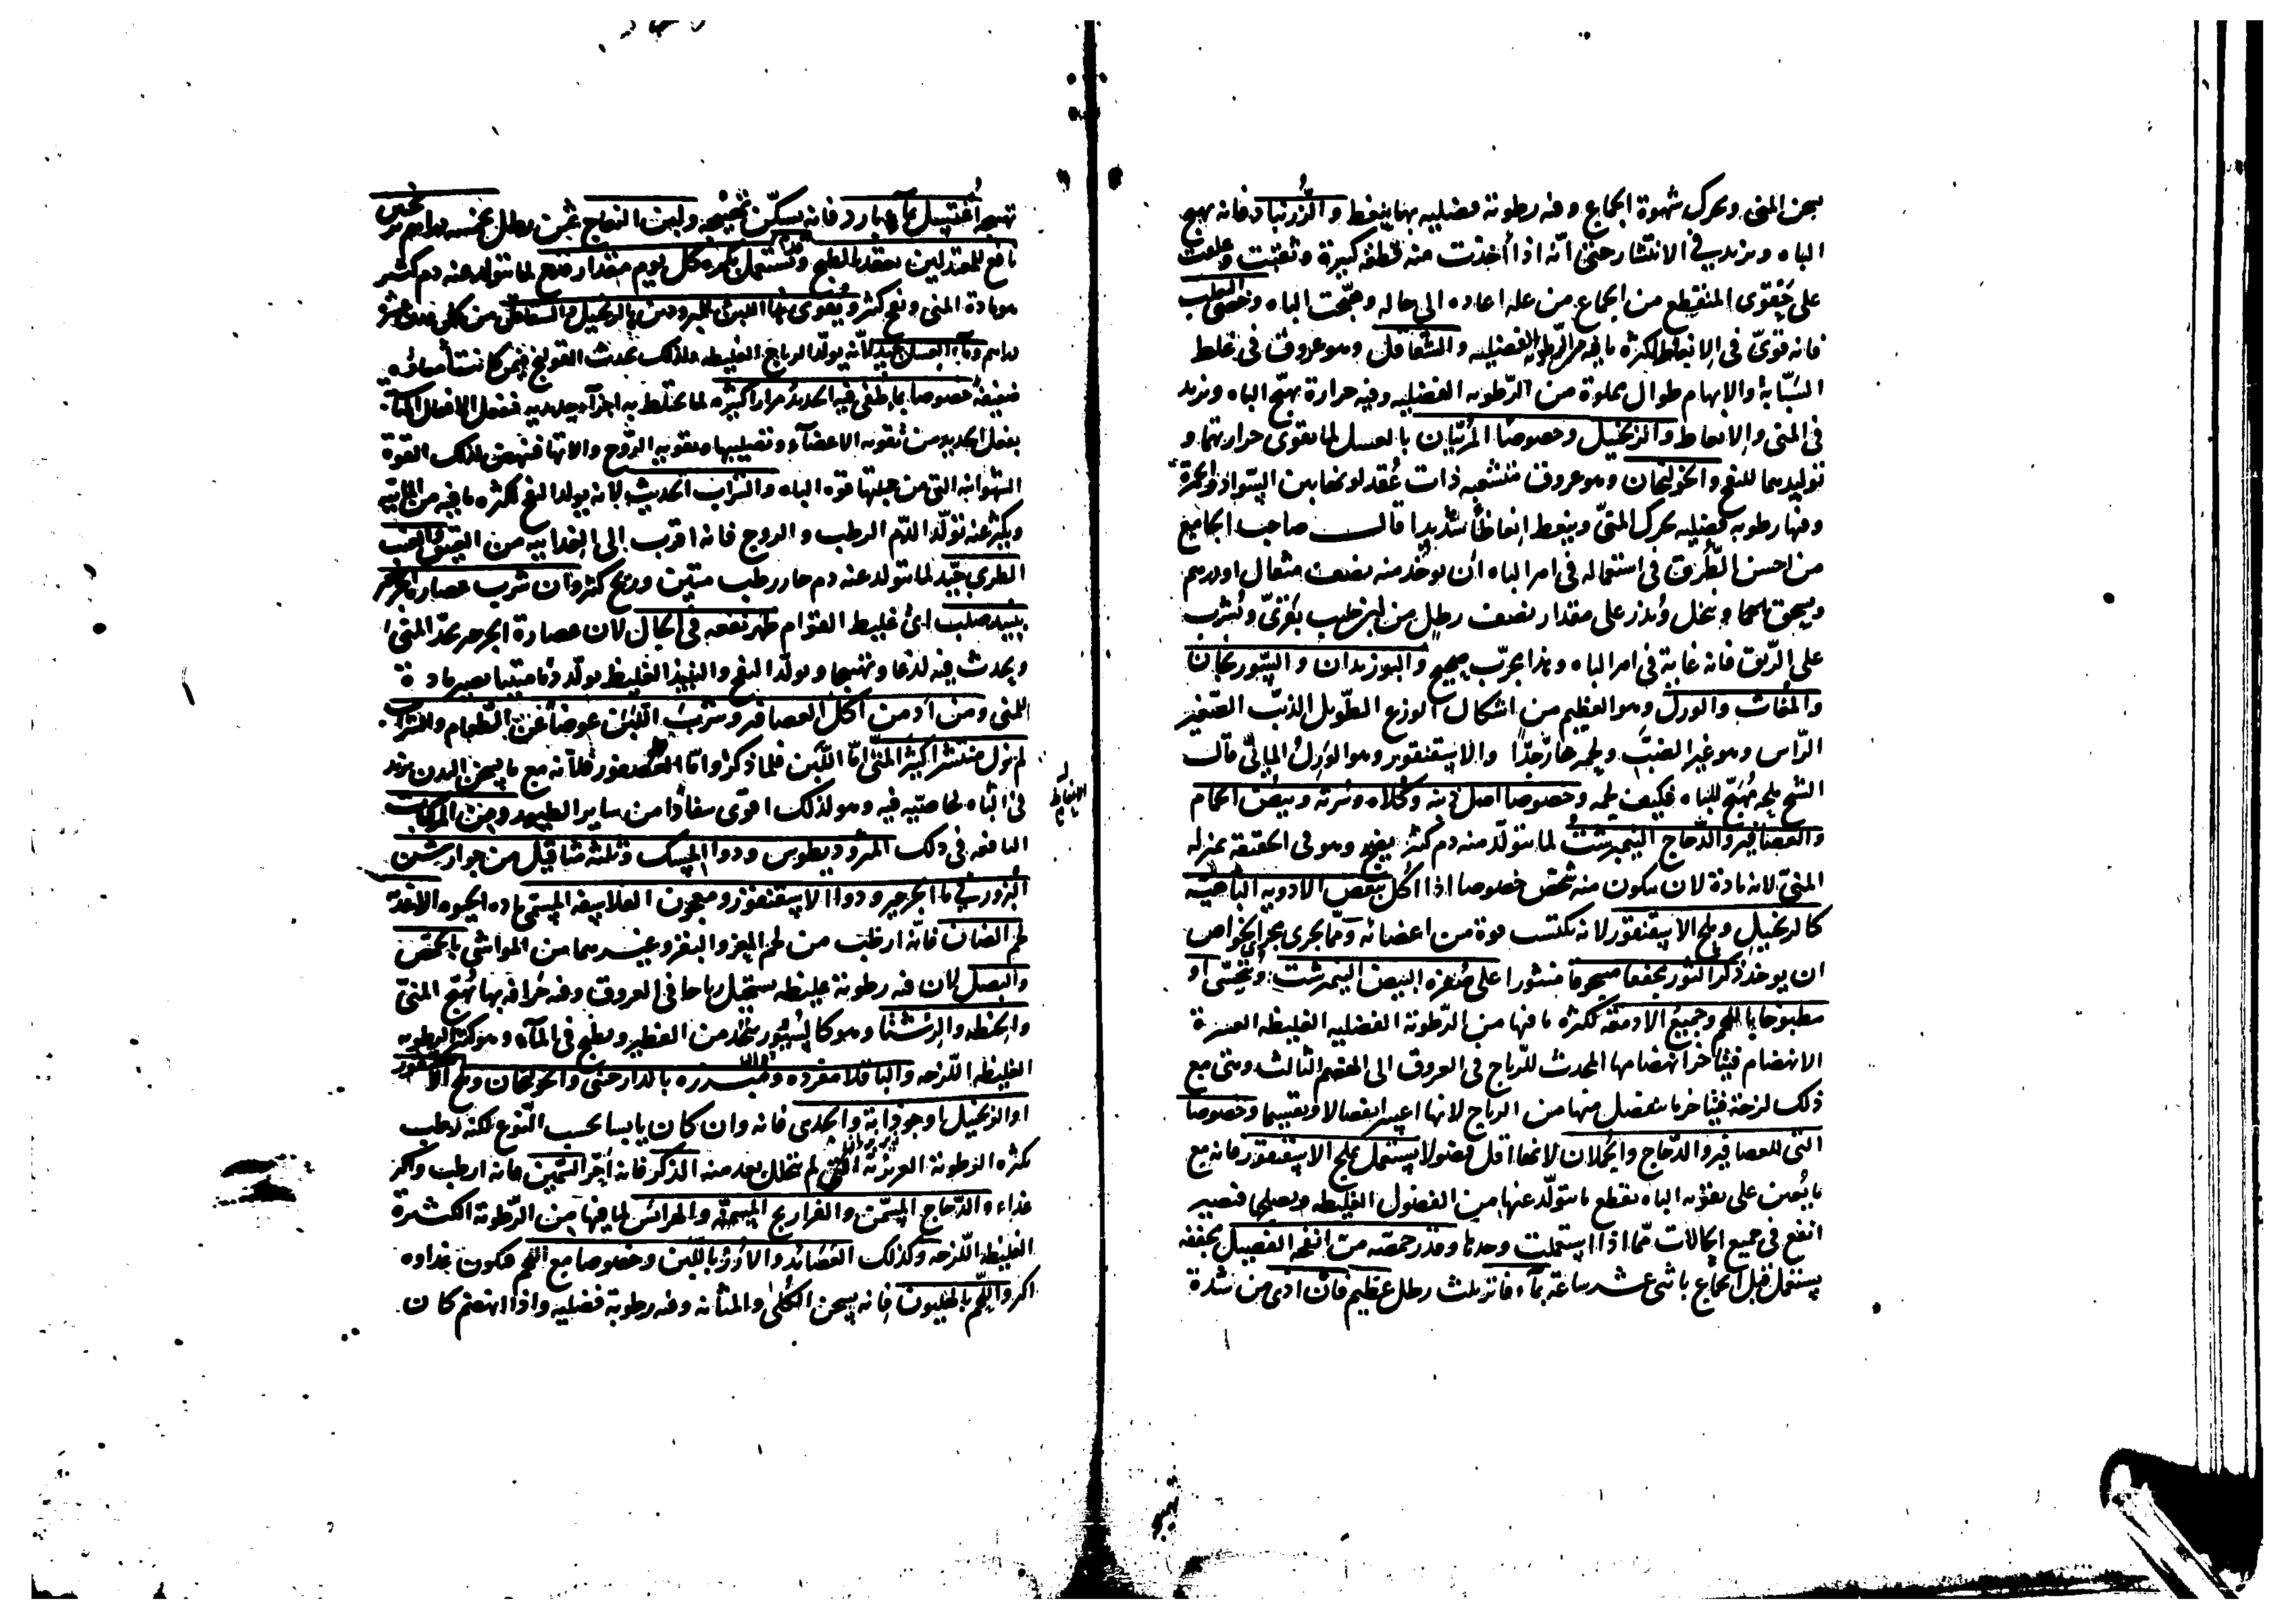 يسخن المنى ويحرك شهوة الجماع وفيه رطوبة فضليه بها ينعظ والزرنباد فانه يهيج
الباه ويزيد في الانتشار حتى انّه اذا اخذت منه قطعة كبيرة وثقبت وعلقت
على حقوى المنقطع من الجماع من علة اعاده الى حاله وهيّجت الباه وخصى الثعلب
فانه قوىّ فى الانعاظ لكثرة ما فيه من الرطوبة الفضليه والشقاقل وهو عروق فى غلظ
السبّابة والابهام طوال مملوة من الرّطوبه الفضليه وفيه حرارة يهيّج الباه ويزيد
فى المنى والانعاظ والزنجبيل وخصوصا المربّيان بالعسل لما يقوى حرارتهما و
توليدهما للنفخ والخولنجان وهو عروق متشعبه ذات عُقد لونها بين السّواد والحمرة
وفيها رطوبه فضليه يحرك المنىّ وينعظ انعاظا شديدا قال صاحب الجامع
من احسن الطّرق فى استعماله فى امر الباه ان يوخذ منه نصف مثقال او درهم
ويسحق ناعما وينخل ويذر على مقدار نصف رطل من لبن حليب بقرىّ ويشرب
على الرّيق فانه غاية فى امر الباه وهذا مجرّب صحيح والبوزيدان والسّورنجان
والمغاث والورل وهو العظيم من اشكال الوزغ الطّويل الذنب الصّغير
الرّاس وهو غير الضبّ ولحمه حارّ جدّا والاسقنقور وهو الورل المائى قال
الشيخ ملحه مُهيّج للباه فكيف لحمه وخصوصا اصل ذنبه وكلاه وسرته وبيض الحمام
والعصافير والدّجاج النيمرشت لما يتولّد منه دم كثير وهو فى الحقيقة بمنزله
المنىّ لانه مادة لان يتكون منه شخص خصوصا اذا اكل ببعض الادويه الباهيّه
كالزنجبيل وملح الاسقنقور لانه يكتسب قوة من اعضائه وممّا يجرى مجرى الخواص
ان يوخذ ذكر الثور مجففا مسحوقا منثورا على صُفرة البيض النيمرشت ويتحسّى او
مطبوخا باللحم وجميع الادمغة لكثره ما فيها من الرّطوبة الفضليه الغليظه العسرة
الانهضام فيتاخر انهضامها المحدث للرّياح فى العروق الى الهضم الثالث وهى مع
ذلك لزجة فيتاخر ما ينفصل منها من الرياح لانها اعسر انفصالا وخصوصا
التى للعصافير والدّجاج والحملان لانها اقل فضولا يستعمل بملح الاسقنقور فانه مع
ما يُعين على تقويه الباه يقطع ما يتولّد عنها من الفضول الغليظه ويصلحها فتصير
انفع فى جميع الحالات ممّا اذا استعملت وحدها وقدر حمصة من انفحه الفصيل مجففه
يستعمل قبل الجماع باثنى عشر ساعة بماء فاتر ثلث رطل عظيم فان اذى من شدة
تهيجه اغتسل بماء بارد فانه يسكّن تهيّجه ولبن النعاج ثمن رطل
نافع للمعتدلين يعقد بالطبخ ويستعمل بكره كل يوم مقدار قدح لما يتولد عنه دم كثير
هو مادة المنى ونفخ كثير ويقوى هذا اللبن للمبرودين بالزنجبيل والشقاقل من كل
دراهم وماء العسل جيد لانّه يولّد الرياح الغليظه ولذلك يحدث القولنج فيمن كانت امعاؤه
ضعيفة خصوصا ما طفى فيه الحديد مرارا كثيره لما يختلط به اجزاء حديديه فيفعل الافعال
يفعل الحديد من تقويه الاعضاء وتصليبها وتقويه الرّوح والاتها فينهض لذلك القوة
الشهوانيه التى من جملتها قوة الباه والشراب الحديث لانه يولد النفخ لكثره ما فيه من المائيّه
ويكثر عنه تولّد الدّم الرطب والروح فانه اقرب الى الغذائيه من العتيق والعنب
الطرى جيّد لما يتولد عنه دم حار رطب متين وريح كثيره وان شرب عصارة الجرجير
بنبيذ صلب اى غليظ القوام ظهر نفعه فى الحال لان عصارة الجرجير يحدّ المنى
ويحدث فيه لذعا وتهييجا ويولّد النفخ والنبيذ الغليظ يولّد دما متينا يصير مادة
للمنى ومن ادمن اكل العصافير وشرب اللّبن عوضا عن الطّعام والشّراب
لم يزل منتشرا كثير المنىّ امّا اللّبن فلما ذكر وامّا العصفور فلانّه مع ما يسخن البدن يزيد
فى الباه لخاصّيه فيه وهو لذلك اقوى سفادا من ساير الطيور ومن المركبات
الانعاظ
النافعه فى ذلك المثروديطوس ودوا المسك وثلثه مثاقيل من جوارشن
البزور فى ما الجرجير ودوا الاسقنقور ومعجون الفلاسفه المسمّى مادة الحيوه الاغذية
لحم الضان فانّه ارطب من لحم المعز والبقر وغيرهما من المواشى بالحمّص
والبصل لان فيه رطوبة غليظه تستحيل رياحا فى العروق وفيه حرافه بها يُهيّج المنىّ
والحنطه والرشتا وهو كالسّيور يتخذ من الفطير ويطبخ فى الماء وهو كثير الرطوبه
الغليظه اللّزجه والباقلا مفرده ومبزّره بالدارصينى والخولنجان وملح الاسقنقور
او الزنجبيل او جوذابة والجدى فانه وان كان يابسا بحسب النّوع لكنه رطب
لكثره الرطوبة الغريزيّه التى لم تتحلل بعد منه الذكر فانه احرّ السّمين فانه ارطب واكثر
غذاء والدّجاج المسّمن والفراريج المسمّنه والهرائس لما فيها من الرّطوبة الكثيرة
الغليظه اللّزجه وكذلك العصائد والارُز باللّبن وخصوصا مع اللحم فيكون غذاوه
اكثر واللّحم بالهليون فانه يسخن الكُلى والمثانه وفيه رطوبة فضليه واذا انهضم كان